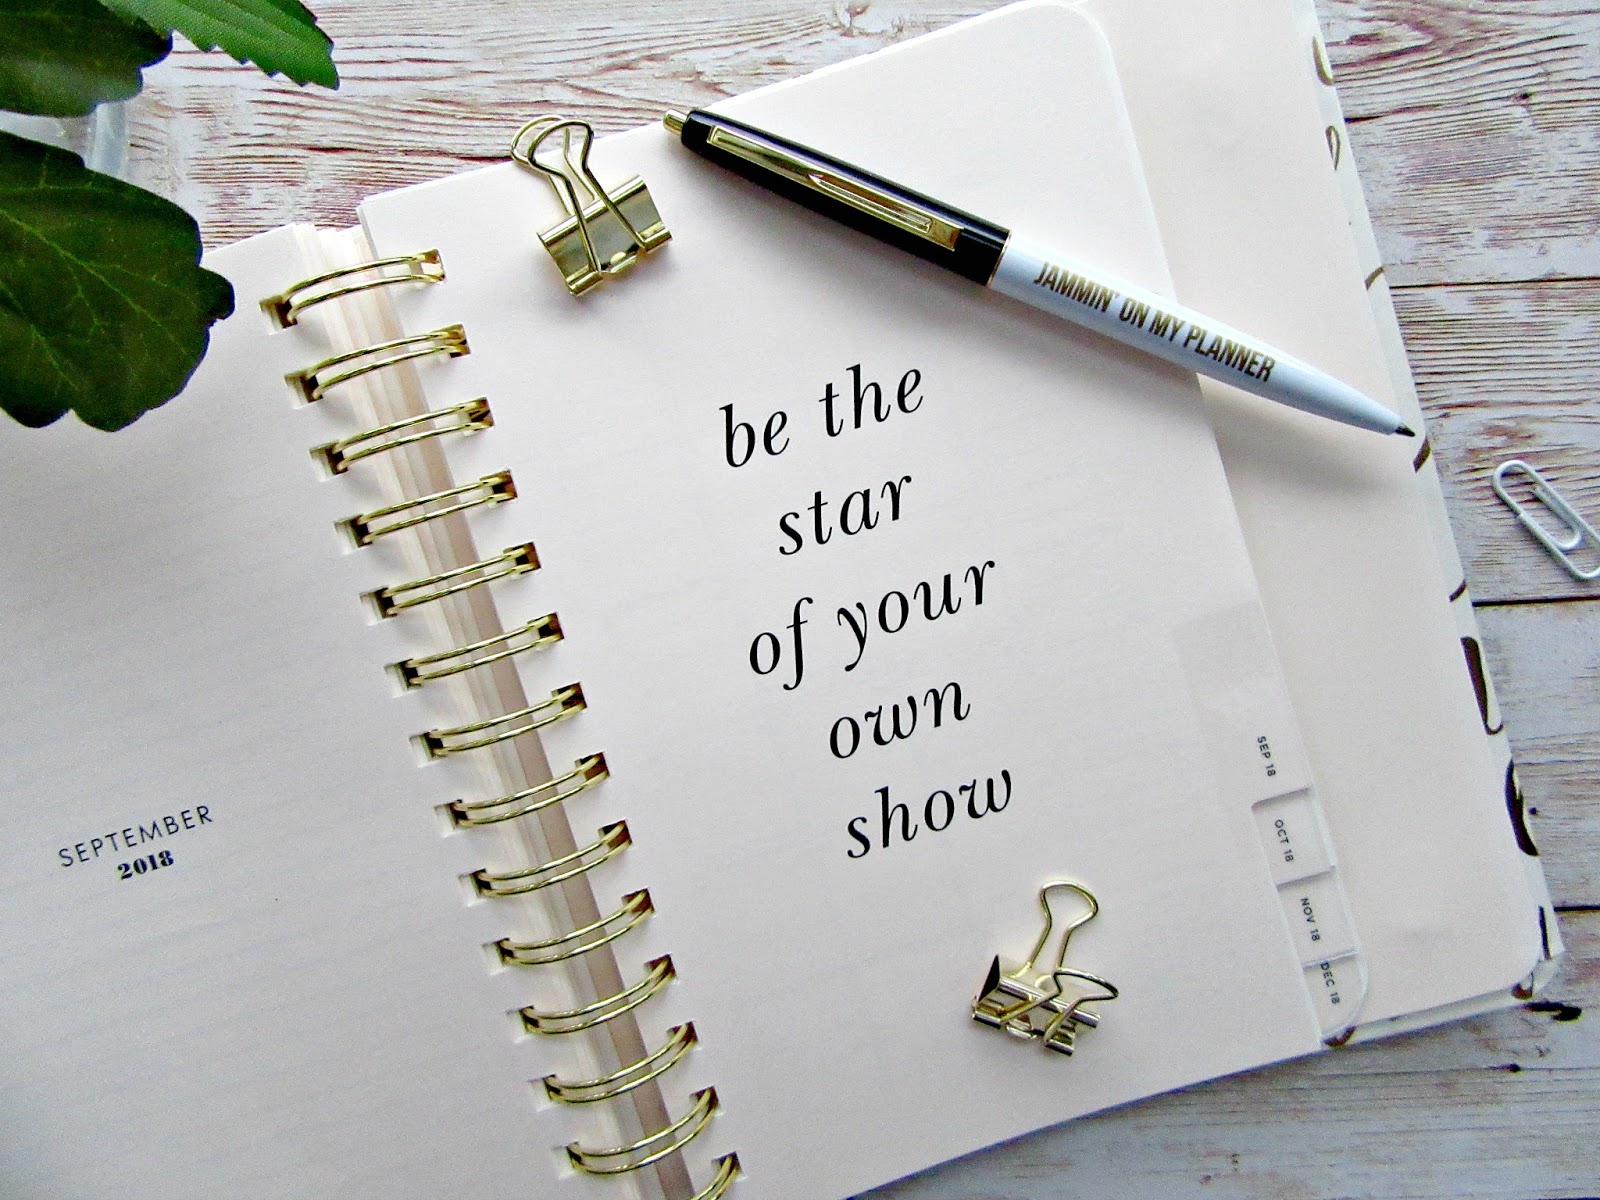 SEPTEMBER
2018
be the
star
of your
own
show
JAMMIN' ON MY PLANNER
SEP 18
OCT 18
NOV 18
DEC 18